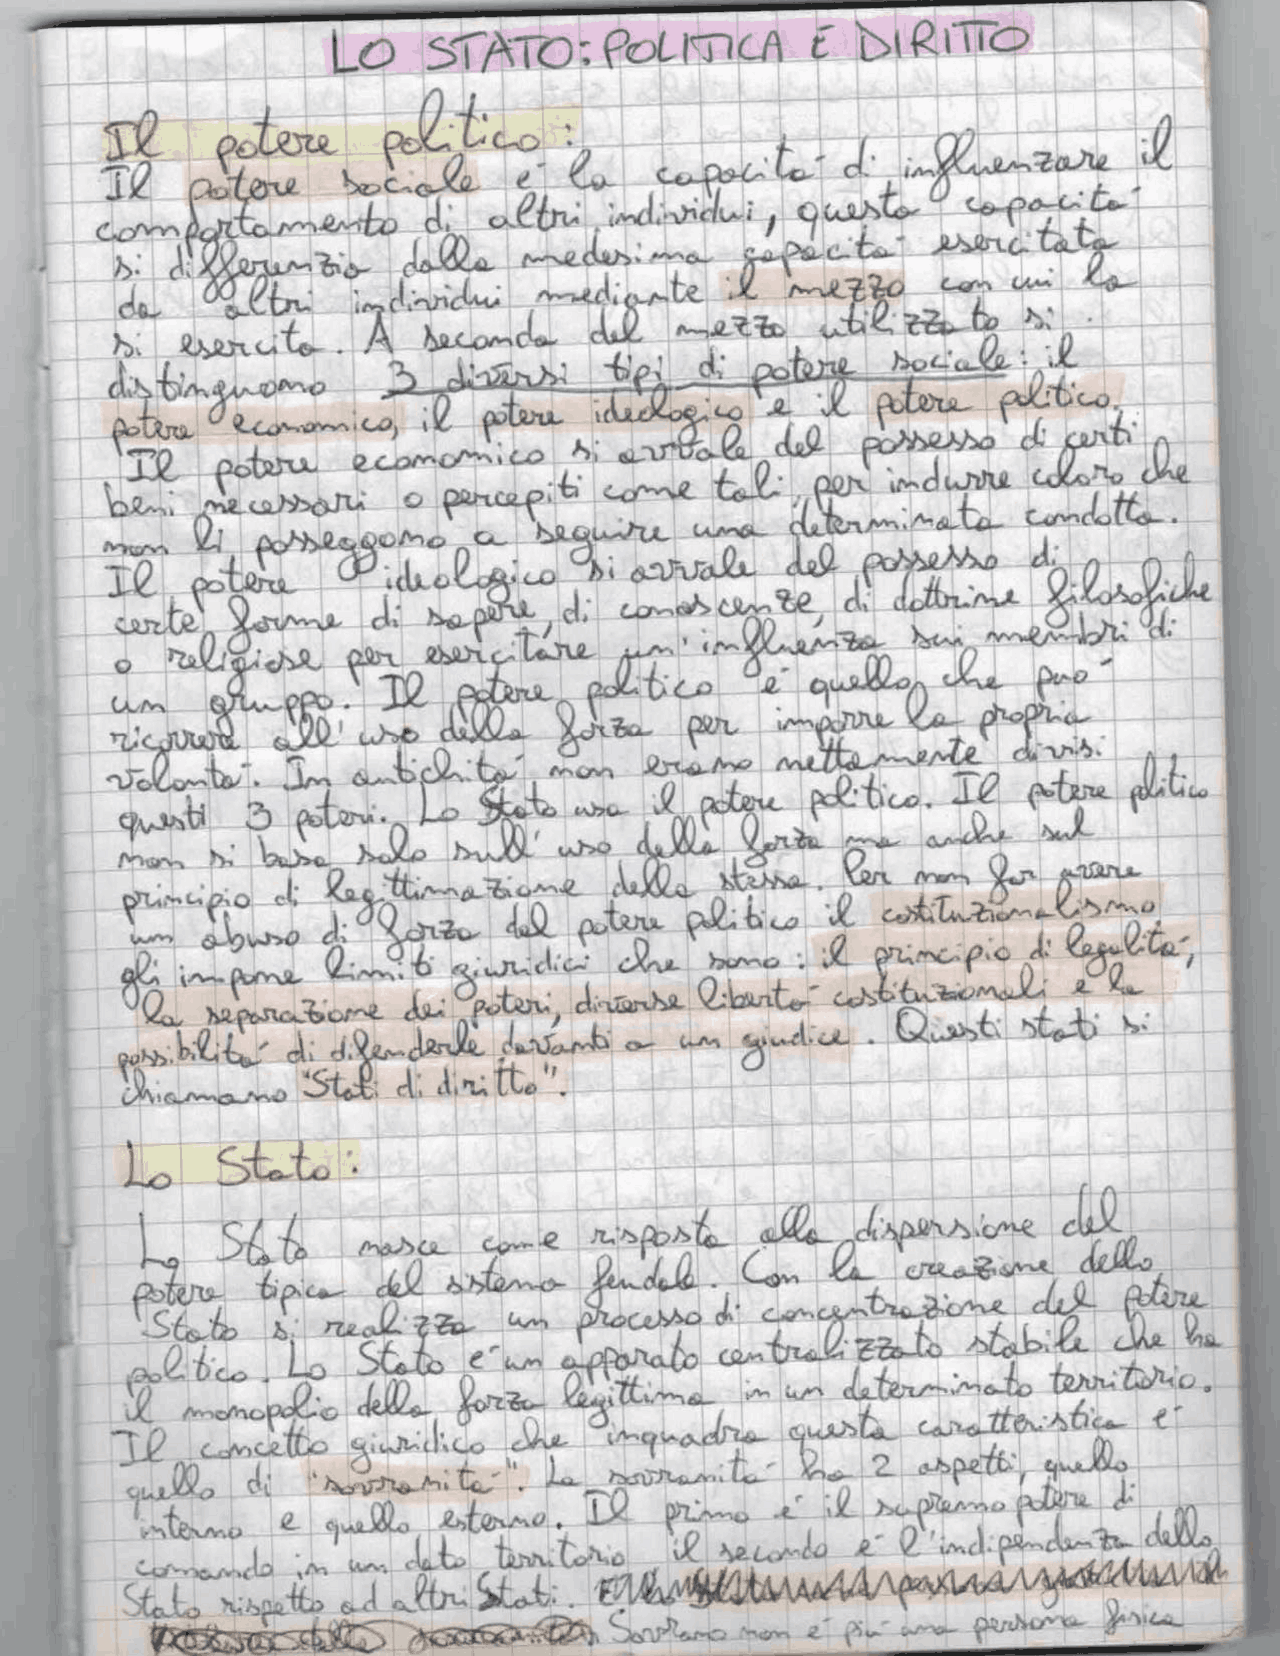 LO STATO: POLITICA E DIRITTO
Il potere politico:
Il potere sociale è la capacità di influenzare il
comportamento di altri individui, questa capacità
si differenzia dalla medesima capacità esercitata
da altri individui mediante il mezzo con cui la
si esercita. A seconda del mezzo utilizzato si
distinguono 3 diversi tipi di potere sociale: il
potere economico, il potere ideologico e il potere politico.
Il potere economico si avvale del possesso di certi
beni necessari o percepiti come tali, per indurre coloro che
non li posseggono a seguire una determinata condotta.
Il potere ideologico si avvale del possesso di
certe forme di sapere, di conoscenze, di dottrine filosofiche
o religiose per esercitare un'influenza sui membri di
un gruppo. Il potere politico è quello che può
ricorrere all'uso della forza per imporre la propria
volontà. In antichità non erano nettamente divisi
questi 3 poteri. Lo Stato usa il potere politico. Il potere politico
non si basa solo sull'uso della forza ma anche sul
principio di legittimazione della stessa. Per non far avere
un abuso di forza del potere politico il costituzionalismo
gli impone limiti giuridici che sono: il principio di legalità,
la separazione dei poteri, diverse libertà costituzionali e la
possibilità di difenderle davanti a un giudice. Questi stati si
chiamano "Stati di diritto".
Lo Stato:
Lo Stato nasce come risposta alla dispersione del
potere tipica del sistema feudale. Con la creazione dello
Stato si realizza un processo di concentrazione del potere
politico. Lo Stato è un apparato centralizzato stabile che ha
il monopolio della forza legittima in un determinato territorio.
Il concetto giuridico che inquadra questa caratteristica è
quello di "sovranità". La sovranità ha 2 aspetti, quello
interno e quello esterno. Il primo è il supremo potere di
comando in un dato territorio il secondo è l'indipendenza dello
Stato rispetto ad altri Stati.
Sovrano non è più una persona fisica